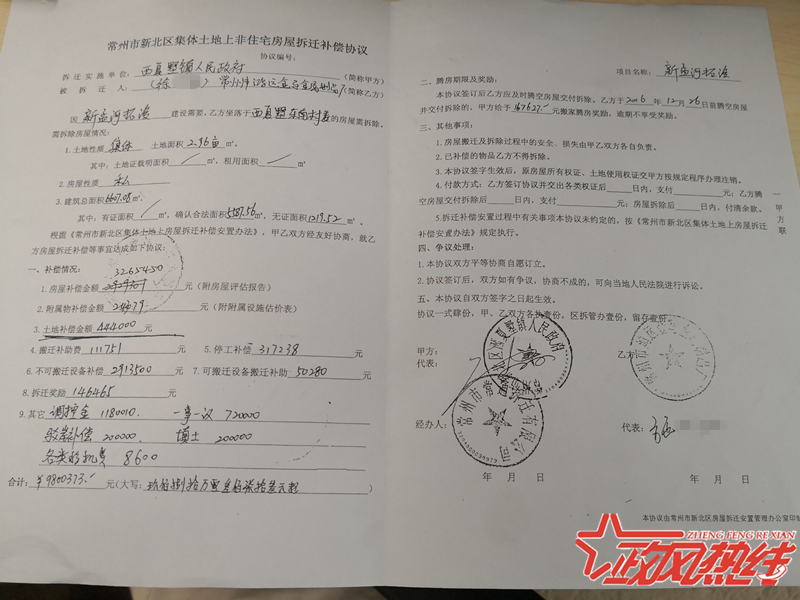 常州市新北区集体土地上非住宅房屋拆迁补偿协议
协议编号：
拆迁实施单位：西夏墅镇人民政府（简称甲方）
被拆迁人：（徐 ）常州市 （简称乙方）
因 新孟河拓浚 建设需要，乙方坐落于 西夏墅 东南村委 的房屋需拆除。
需拆除房屋情况：
1.土地性质 集体 土地面积 2.96亩 ㎡。
其中：土地证载明面积 / ㎡，租用面积 / ㎡。
2.房屋性质 私
3.建筑总面积 ㎡。
其中：有证面积 / ㎡，确认合法面积 5387.56 ㎡，无证面积 1219.52 ㎡。
根据《常州市新北区集体土地上房屋拆迁补偿安置办法》，甲乙双方经友好协商，就乙
方房屋拆迁补偿等事宜达成如下协议：
一、补偿情况：
3265450
1.房屋补偿金额 元（附房屋评估报告）
2.附属物补偿金额 元（附附属设施估价表）
3.土地补偿金额 444000 元
4.搬迁补助费 111751 元 5.停工补偿 317238 元
6.不可搬迁设备补偿 2913500 元 7.可搬迁设备搬迁补助 50280 元
8.拆迁奖励 146465 元
9.其它 调控金 1180010. 一事一议 720000
驳岸补偿 200000. 填土 200000
各类移机费 8600
合计：¥9800373. 元（大写： ）
项目名称：新孟河拓浚
二、腾房期限及奖励：
本协议签订后乙方应及时腾空房屋交付拆除。乙方于 2016 年 12 月 26 日前腾空房屋
并交付拆除的，甲方给予 167627. 元搬家腾房奖励，逾期不享受奖励。
三、其他事项：
1.房屋搬迁及拆除过程中的安全、损失由甲乙双方各自负责。
2.已补偿的物品乙方不得拆除。
3.本协议签字生效后，原房屋所有权证、土地使用权证交甲方按规定程序办理注销。
4.付款方式：乙方签订协议并交出各类权证后 日内，支付 元；乙方腾
空房屋交付拆除后 日内，支付 元；房屋拆除后 日内，付清余款。
5.拆迁补偿安置过程中有关事项本协议未约定的，按《常州市新北区集体土地上房屋拆迁
补偿安置办法》规定执行。
四、争议处理：
1.本协议双方平等协商自愿订立。
2.协议签订后，双方如有争议，协商不成的，可向当地人民法院进行诉讼。
五、本协议自双方签字之日起生效。
协议一式肆份，甲、乙双方各执壹份，区拆管办壹份，留存壹份。
一
甲
方
联
甲方：
代表：
乙方：
常州市新北区西夏墅镇人民政府
经办人：
代表：
年 月 日
年 月 日
本协议由常州市新北区房屋拆迁安置管理办公室印制
ZHENG FENG RE XIAN
政风热线